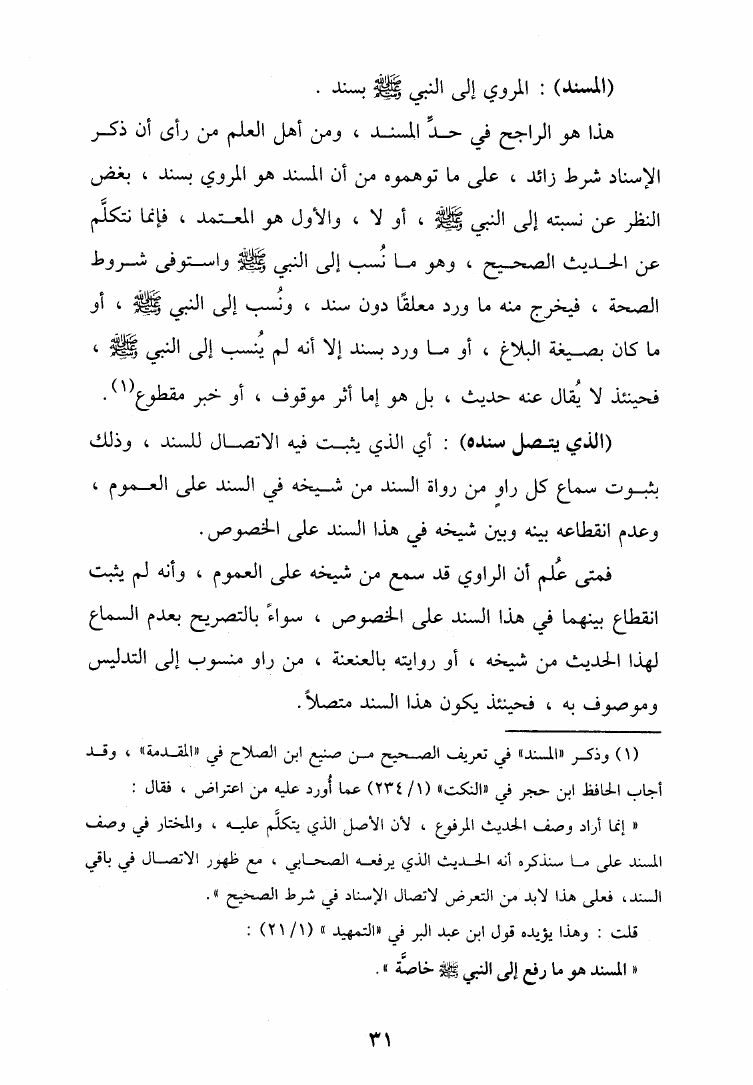 (المسند) : المروي إلى النبي ﷺ بسند .
هذا هو الراجح في حدِّ المسند ، ومن أهل العلم من رأى أن ذكر
الإسناد شرط زائد ، على ما توهموه من أن المسند هو المروي بسند ، بغض
النظر عن نسبته إلى النبي ﷺ ، أو لا ، والأول هو المعتمد ، فإنما نتكلَّم
عن الحديث الصحيح ، وهو ما نُسب إلى النبي ﷺ واستوفى شروط
الصحة ، فيخرج منه ما ورد معلقًا دون سند ، ونُسب إلى النبي ﷺ ، أو
ما كان بصيغة البلاغ ، أو ما ورد بسند إلا أنه لم يُنسب إلى النبي ﷺ ،
فحينئذ لا يُقال عنه حديث ، بل هو إما أثر موقوف ، أو خبر مقطوع(١).
(الذي يتصل سنده) : أي الذي يثبت فيه الاتصال للسند ، وذلك
بثبوت سماع كل راوٍ من رواة السند من شيخه في السند على العموم ،
وعدم انقطاعه بينه وبين شيخه في هذا السند على الخصوص.
فمتى عُلم أن الراوي قد سمع من شيخه على العموم ، وأنه لم يثبت
انقطاع بينهما في هذا السند على الخصوص ، سواءً بالتصريح بعدم السماع
لهذا الحديث من شيخه ، أو روايته بالعنعنة ، من راو منسوب إلى التدليس
وموصوف به ، فحينئذ يكون هذا السند متصلاً.
(١) وذكر «المسند» في تعريف الصحيح من صنيع ابن الصلاح في «المقدمة» ، وقد
أجاب الحافظ ابن حجر في «النكت» (١/ ٢٣٤) عما أُورد عليه من اعتراض ، فقال :
« إنما أراد وصف الحديث المرفوع ، لأن الأصل الذي يتكلَّم عليه ، والمختار في وصف
المسند على ما سنذكره أنه الحديث الذي يرفعه الصحابي ، مع ظهور الاتصال في باقي
السند، فعلى هذا لابد من التعرض لاتصال الإسناد في شرط الصحيح ».
قلت : وهذا يؤيده قول ابن عبد البر في «التمهيد » (١/ ٢١) :
« المسند هو ما رفع إلى النبي ﷺ خاصَّة ».
٣١